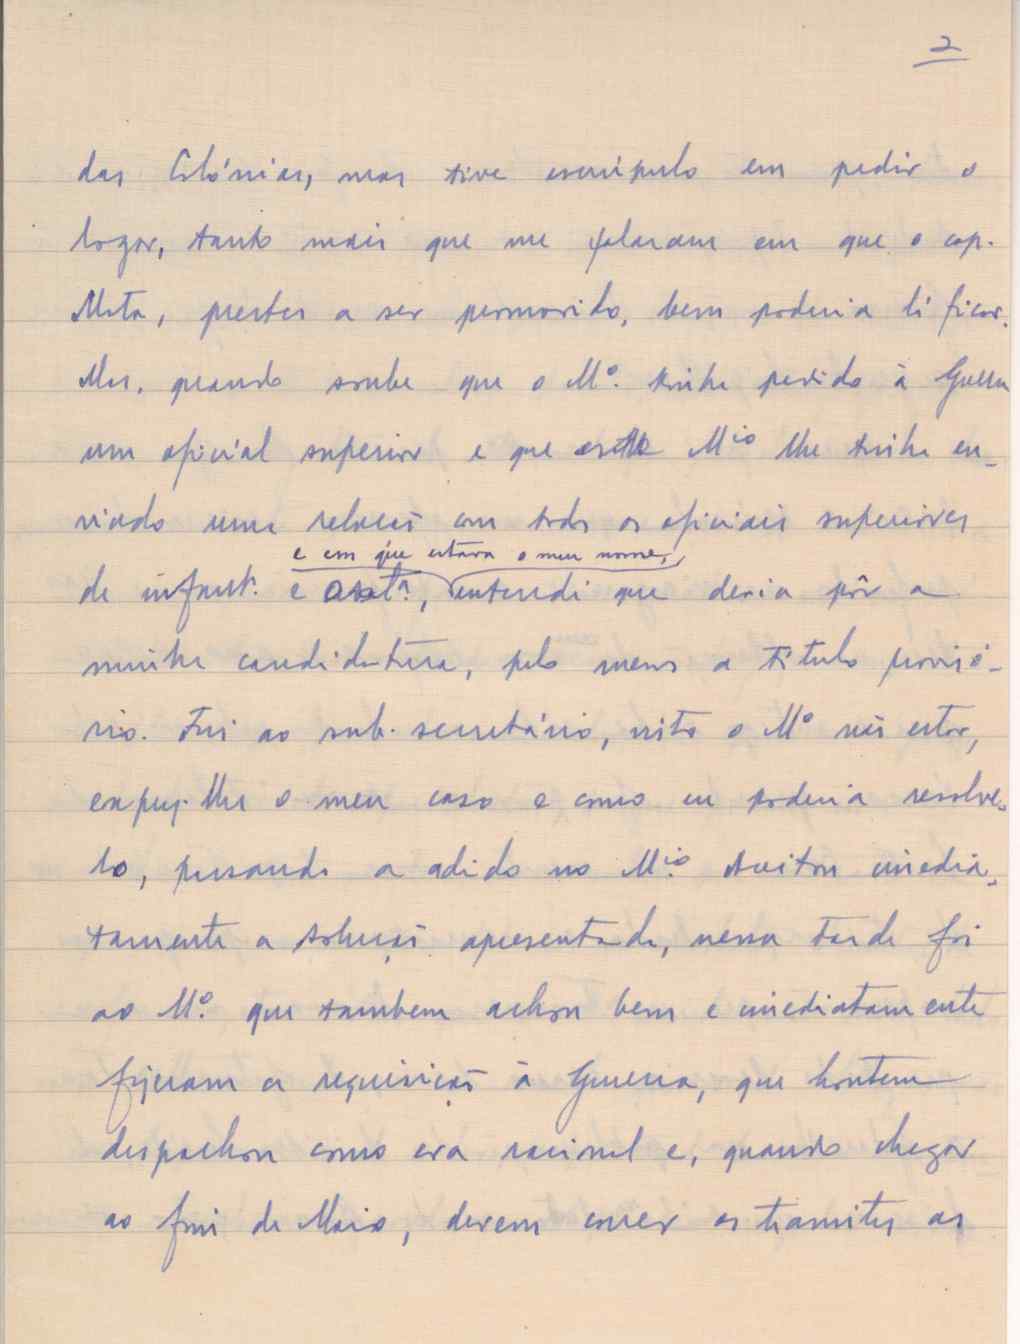 2
das Colónias, mas tive escrúpulo em pedir o
logar, tanto mais que me falaram em que o cap.
Mota, prestes a ser promovido, bem poderia lá ficar.
Mas, quando soube que o Mº. tinha pedido à Guerra
um oficial superior e que este Mio lhe tinha en-
viado uma relação com todos os oficiais superiores
e em que estava o meu nome,
de infant.ª e art.ª, entendi que devia pôr a
minha candidatura, pelo menos a titulo provisó-
rio. Fui ao sub-secretário, visto o Mº não estar,
expuz-lhe o meu caso e como eu poderia resolve-
lo, passando a adido no Mio. Aceitou imedia-
tamente a solução apresentada, nessa tarde foi
ao Mº. que tambem achou bem e imediatamente
fizeram a requisição à Guerra, que hontem
despachou como era racional e, quando chegar
ao fim de Maio, devem correr os tramites as